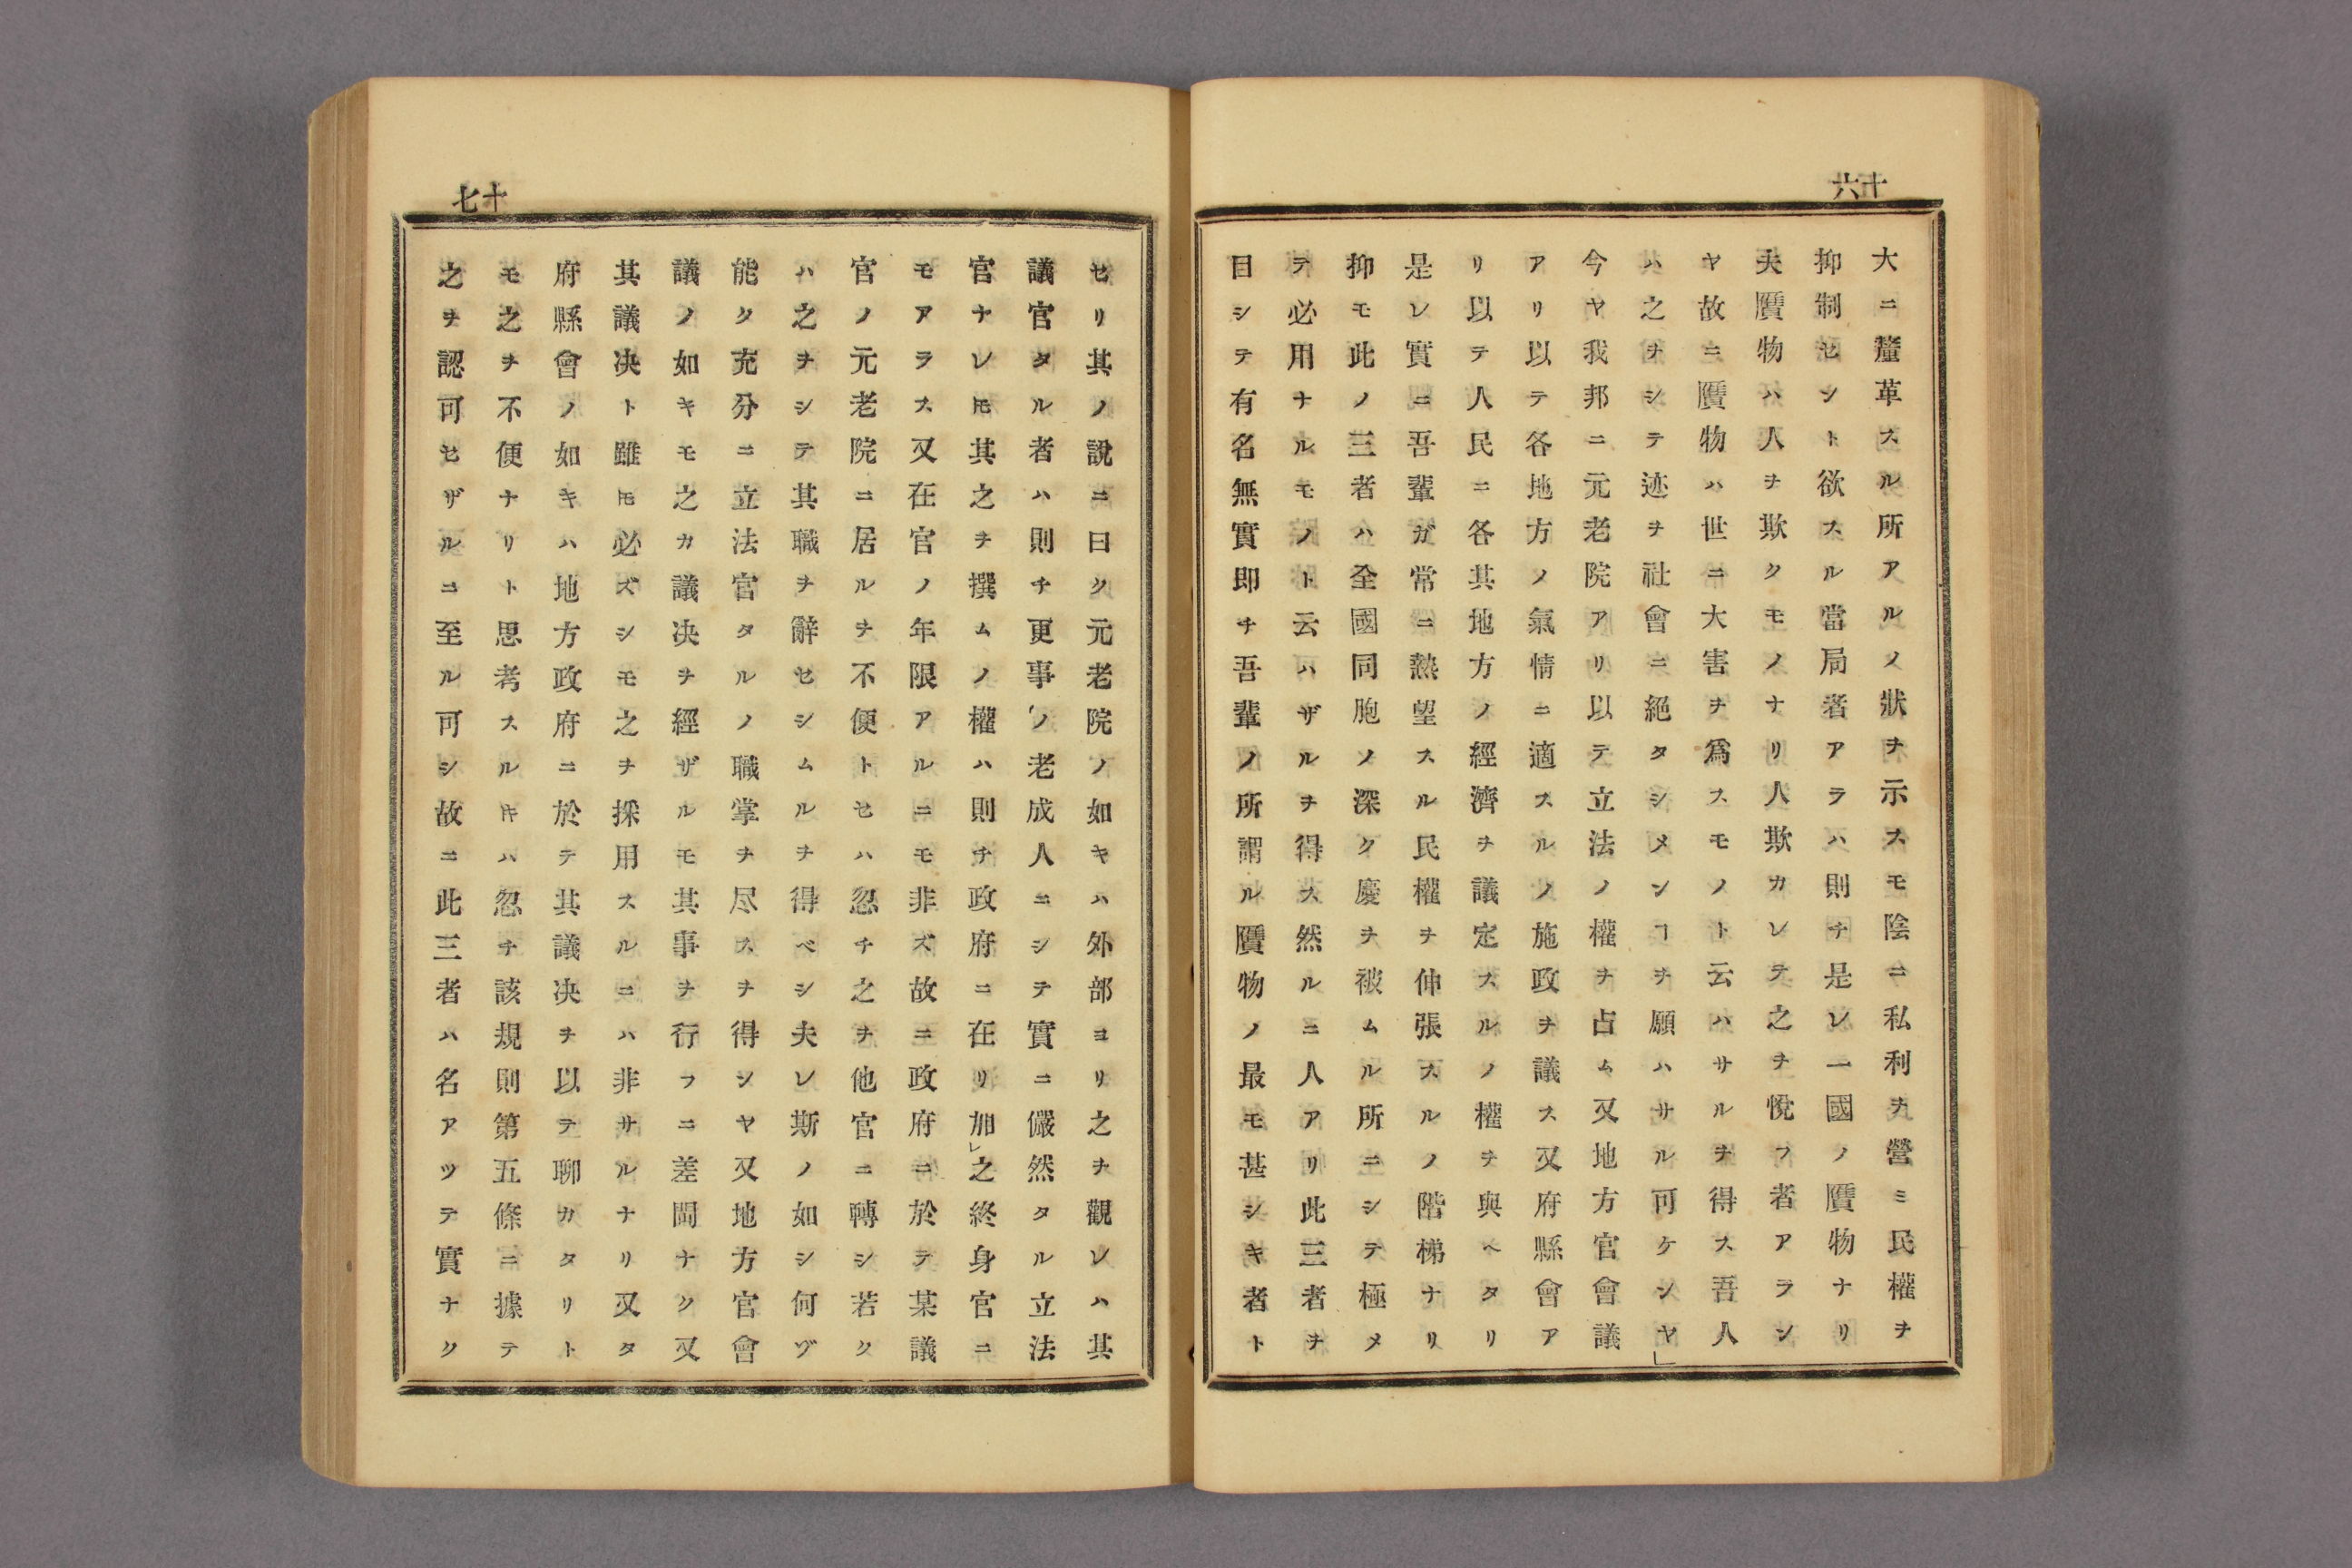 十六
大ニ釐革スル所アルノ狀ヲ示スモ陰ニ私利ヲ營ミ民權ヲ
抑制セント欲スル當局者アラハ則チ是レ一國ノ贋物ナリ
夫贋物ハ人ヲ欺クモノナリ人欺カレテ之ヲ悅フ者アラン
ヤ故ニ贋物ハ世ニ大害ヲ爲スモノト云ハサルヲ得ス吾人
ハ之ヲシテ迹ヲ社會ニ絕タシメンヿヲ願ハサル可ケンヤ」
今ヤ我邦ニ元老院アリ以テ立法ノ權ヲ占ム又地方官會議
アリ以テ各地方ノ氣情ニ適スルノ施政ヲ議ス又府縣會ア
リ以テ人民ニ各其地方ノ經濟ヲ議定スルノ權ヲ與ヘタリ
是レ實ニ吾輩ガ常ニ熱望スル民權ヲ伸張スルノ階梯ナリ
抑モ此ノ三者ハ全國同胞ノ深ク慶ヲ被ムル所ニシテ極メ
テ必用ナルモノト云ハザルヲ得ス然ルニ人アリ此三者ヲ
目シテ有名無實即チ吾輩ノ所謂ル贋物ノ最モ甚シキ者ト
十七
セリ其ノ說ニ曰ク元老院ノ如キハ外部ヨリ之ヲ觀レハ其
議官タル者ハ則チ更事ノ老成人ニシテ實ニ儼然タル立法
官ナレ𪜈其之ヲ撰ムノ權ハ則チ政府ニ在リ加レ之終身官ニ
モアラス又在官ノ年限アルニモ非ズ故ニ政府ニ於テ某議
官ノ元老院ニ居ルヲ不便トセハ忽チ之ヲ他官ニ轉シ若ク
ハ之ヲシテ其職ヲ辭セシムルヲ得ベシ夫レ斯ノ如シ何ヅ
能ク充分ニ立法官タルノ職掌ヲ尽スヲ得ンヤ又地方官會
議ノ如キモ之カ議决ヲ經ザルモ其事ヲ行フニ差閊ナク又
其議决ト雖𪜈必ズシモ之ヲ採用スルニハ非サルナリ又タ
府縣會ノ如キハ地方政府ニ於テ其議决ヲ以テ聊カタリト
モ之ヲ不便ナリト思考スルキハ忽チ該規則第五條ニ據テ
之ヲ認可セザルニ至ル可シ故ニ此三者ハ名アツテ實ナク